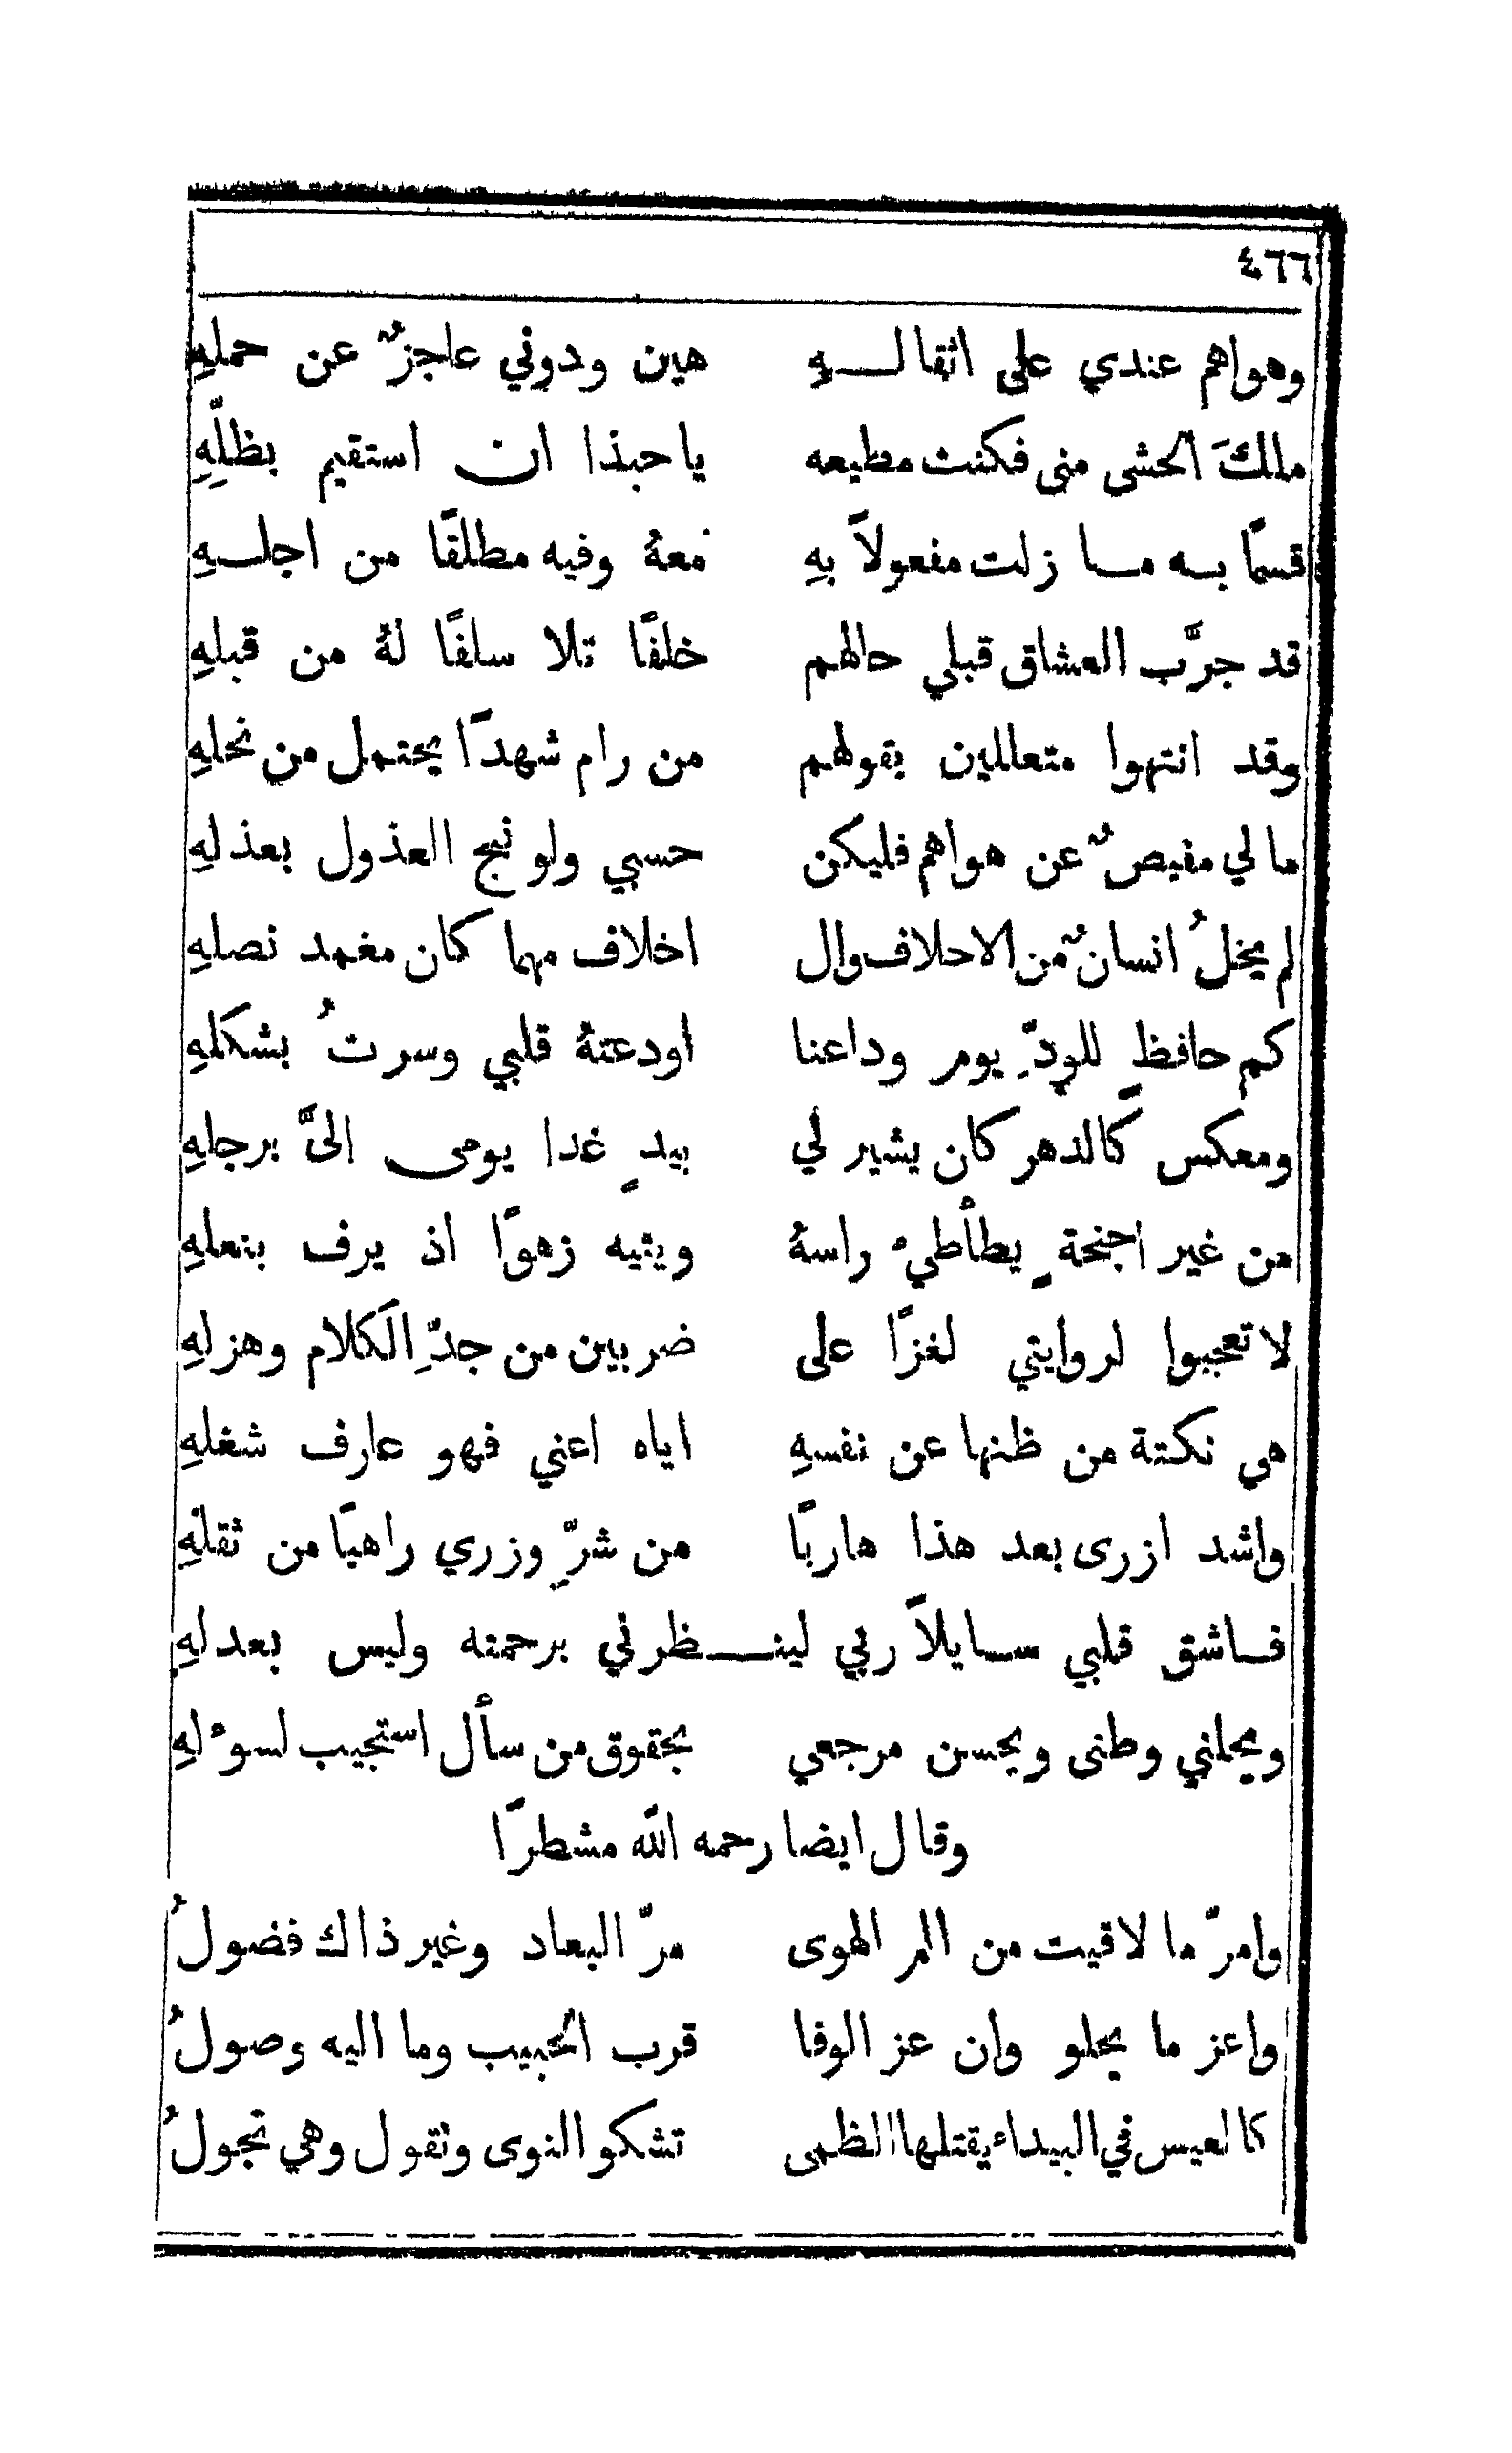 ٤٦٦
وهواهم عندي على اثقالـــهِ هين ودوني عاجزٌ عن حملهِ
ملكَ الحشى منى فكنت مطيعه يا حبذا ان استقيم بظلِّهِ
قسمًا بـه مـا زلت مفعولاً بهِ معهُ وفيه مطلقًا من اجلـهِ
قد جرَّب العشاق قبلي حالهم خلفًا تلا سلفًا لهُ من قبلهِ
وقد انتهوا متعاللين بقولهم من رام شهدًا يحتمل من نحلهِ
ما لي مفيصٌ عن هواهم فليكن حسبي ولو نبج العذول بعذلهِ
لم يخلُ انسانٌ من الاحلاف وال اخلاف مهما كان مغمد نصلهِ
كم حافظٍ للودِّ يوم وداعنا اودعتهُ قلبي وسرتُ بشكلهِ
ومعكسٍ كالدهر كان يشير لي بيدٍ غدا يومى الىَّ برجلهِ
من غير اجنحةٍ يطأطيء راسهُ ويثيه زهوًا اذ يرف بنعلهِ
لا تعجبوا لروايتي لغزًا على ضربين من جدِّ الكلام وهزلهِ
هي نكتة من ظنها عن نفسهِ اياه اعني فهو عارف شغلهِ
واشد ازرى بعد هذا هاربًا من شرِّ وزري راهبًا من ثقلهِ
فـاشق قلبي سـايلاً ربي لينـــظرني برحمته وليس بعدلهِ
ويحلني وطنى ويحسن مرجعي بحقوق من سأل استجيب لسوءلهِ
وقال ايضا رحمه الله مشطرًا
وامرّ ما لاقيت من الم الهوى مرّ البعاد وغير ذاك فضولُ
واعز ما يحلو وان عز الوفا قرب الحبيب وما اليه وصولُ
كالعيس في البيداء يقتلها الظمى تشكو النوى وتقول وهي تجولُ